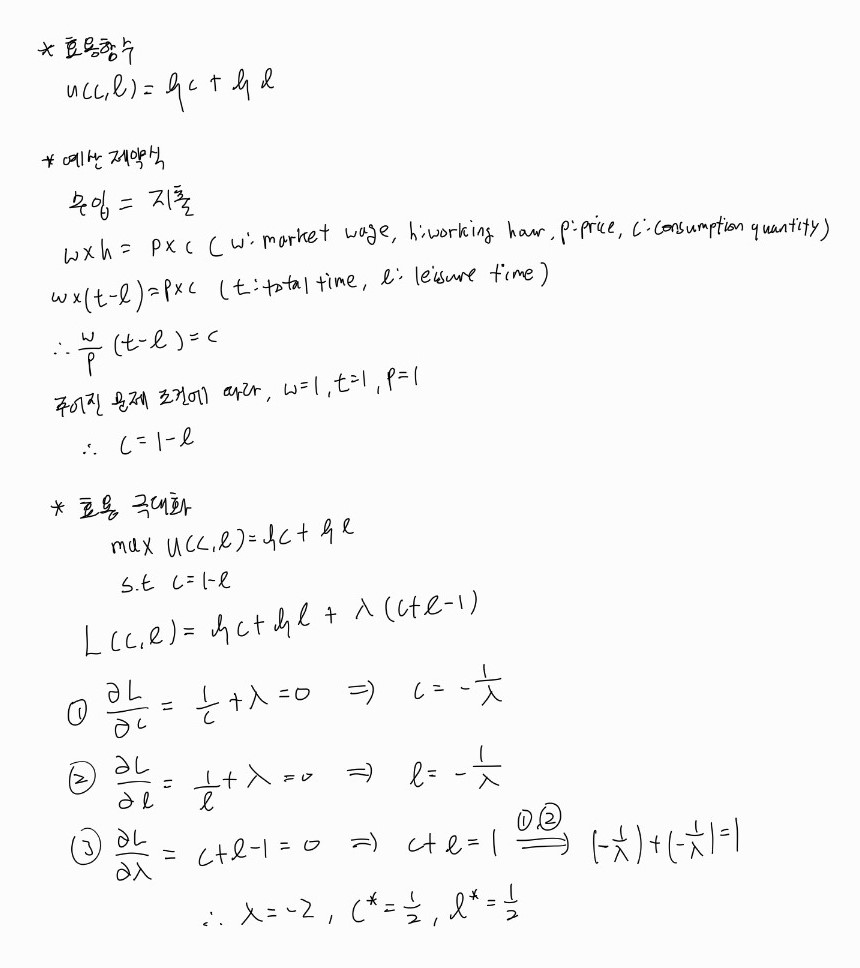 * 효용함수
u(c,l) = ln c + ln l
* 예산 제약식
수입 = 지출
w×h = p×c ( w: market wage, h: working hour, p: price, c: consumption quantity)
w×(t-l) = p×c (t: total time, l: leisure time)
∴ w/p (t-l) = c
주어진 문제 조건에 따라, w=1, t=1, p=1
∴ c = 1-l
* 효용 극대화
max u(c,l) = ln c + ln l
s.t c = 1-l
L(c,l) = ln c + ln l + λ(c+l-1)
① ∂L/∂c = 1/c + λ = 0 ⇒ c = -1/λ
② ∂L/∂l = 1/l + λ = 0 ⇒ l = -1/λ
③ ∂L/∂λ = c+l-1 = 0 ⇒ c+l = 1 ①,② ⇒ (-1/λ)+(-1/λ)=1
∴ λ = -2, c* = 1/2, l* = 1/2